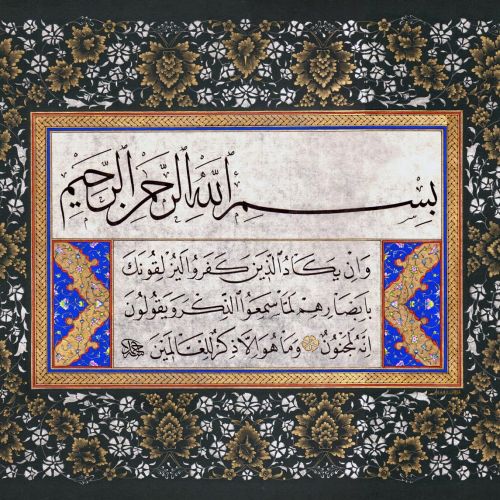 بِسْمِ ٱللَّهِ ٱلرَّحْمٰنِ ٱلرَّحِيمِ
وَاِنْ يَكَادُ ٱلَّذِينَ كَفَرُوا لَيُزْلِقُونَكَ
بِاَبْصَارِهِمْ لَمَّا سَمِعُوا ٱلذِّكْرَ وَيَقُولُونَ
اِنَّهُ لَمَجْنُونٌ وَمَا هُوَ اِلَّا ذِكْرٌ لِلْعَالَمِينَ